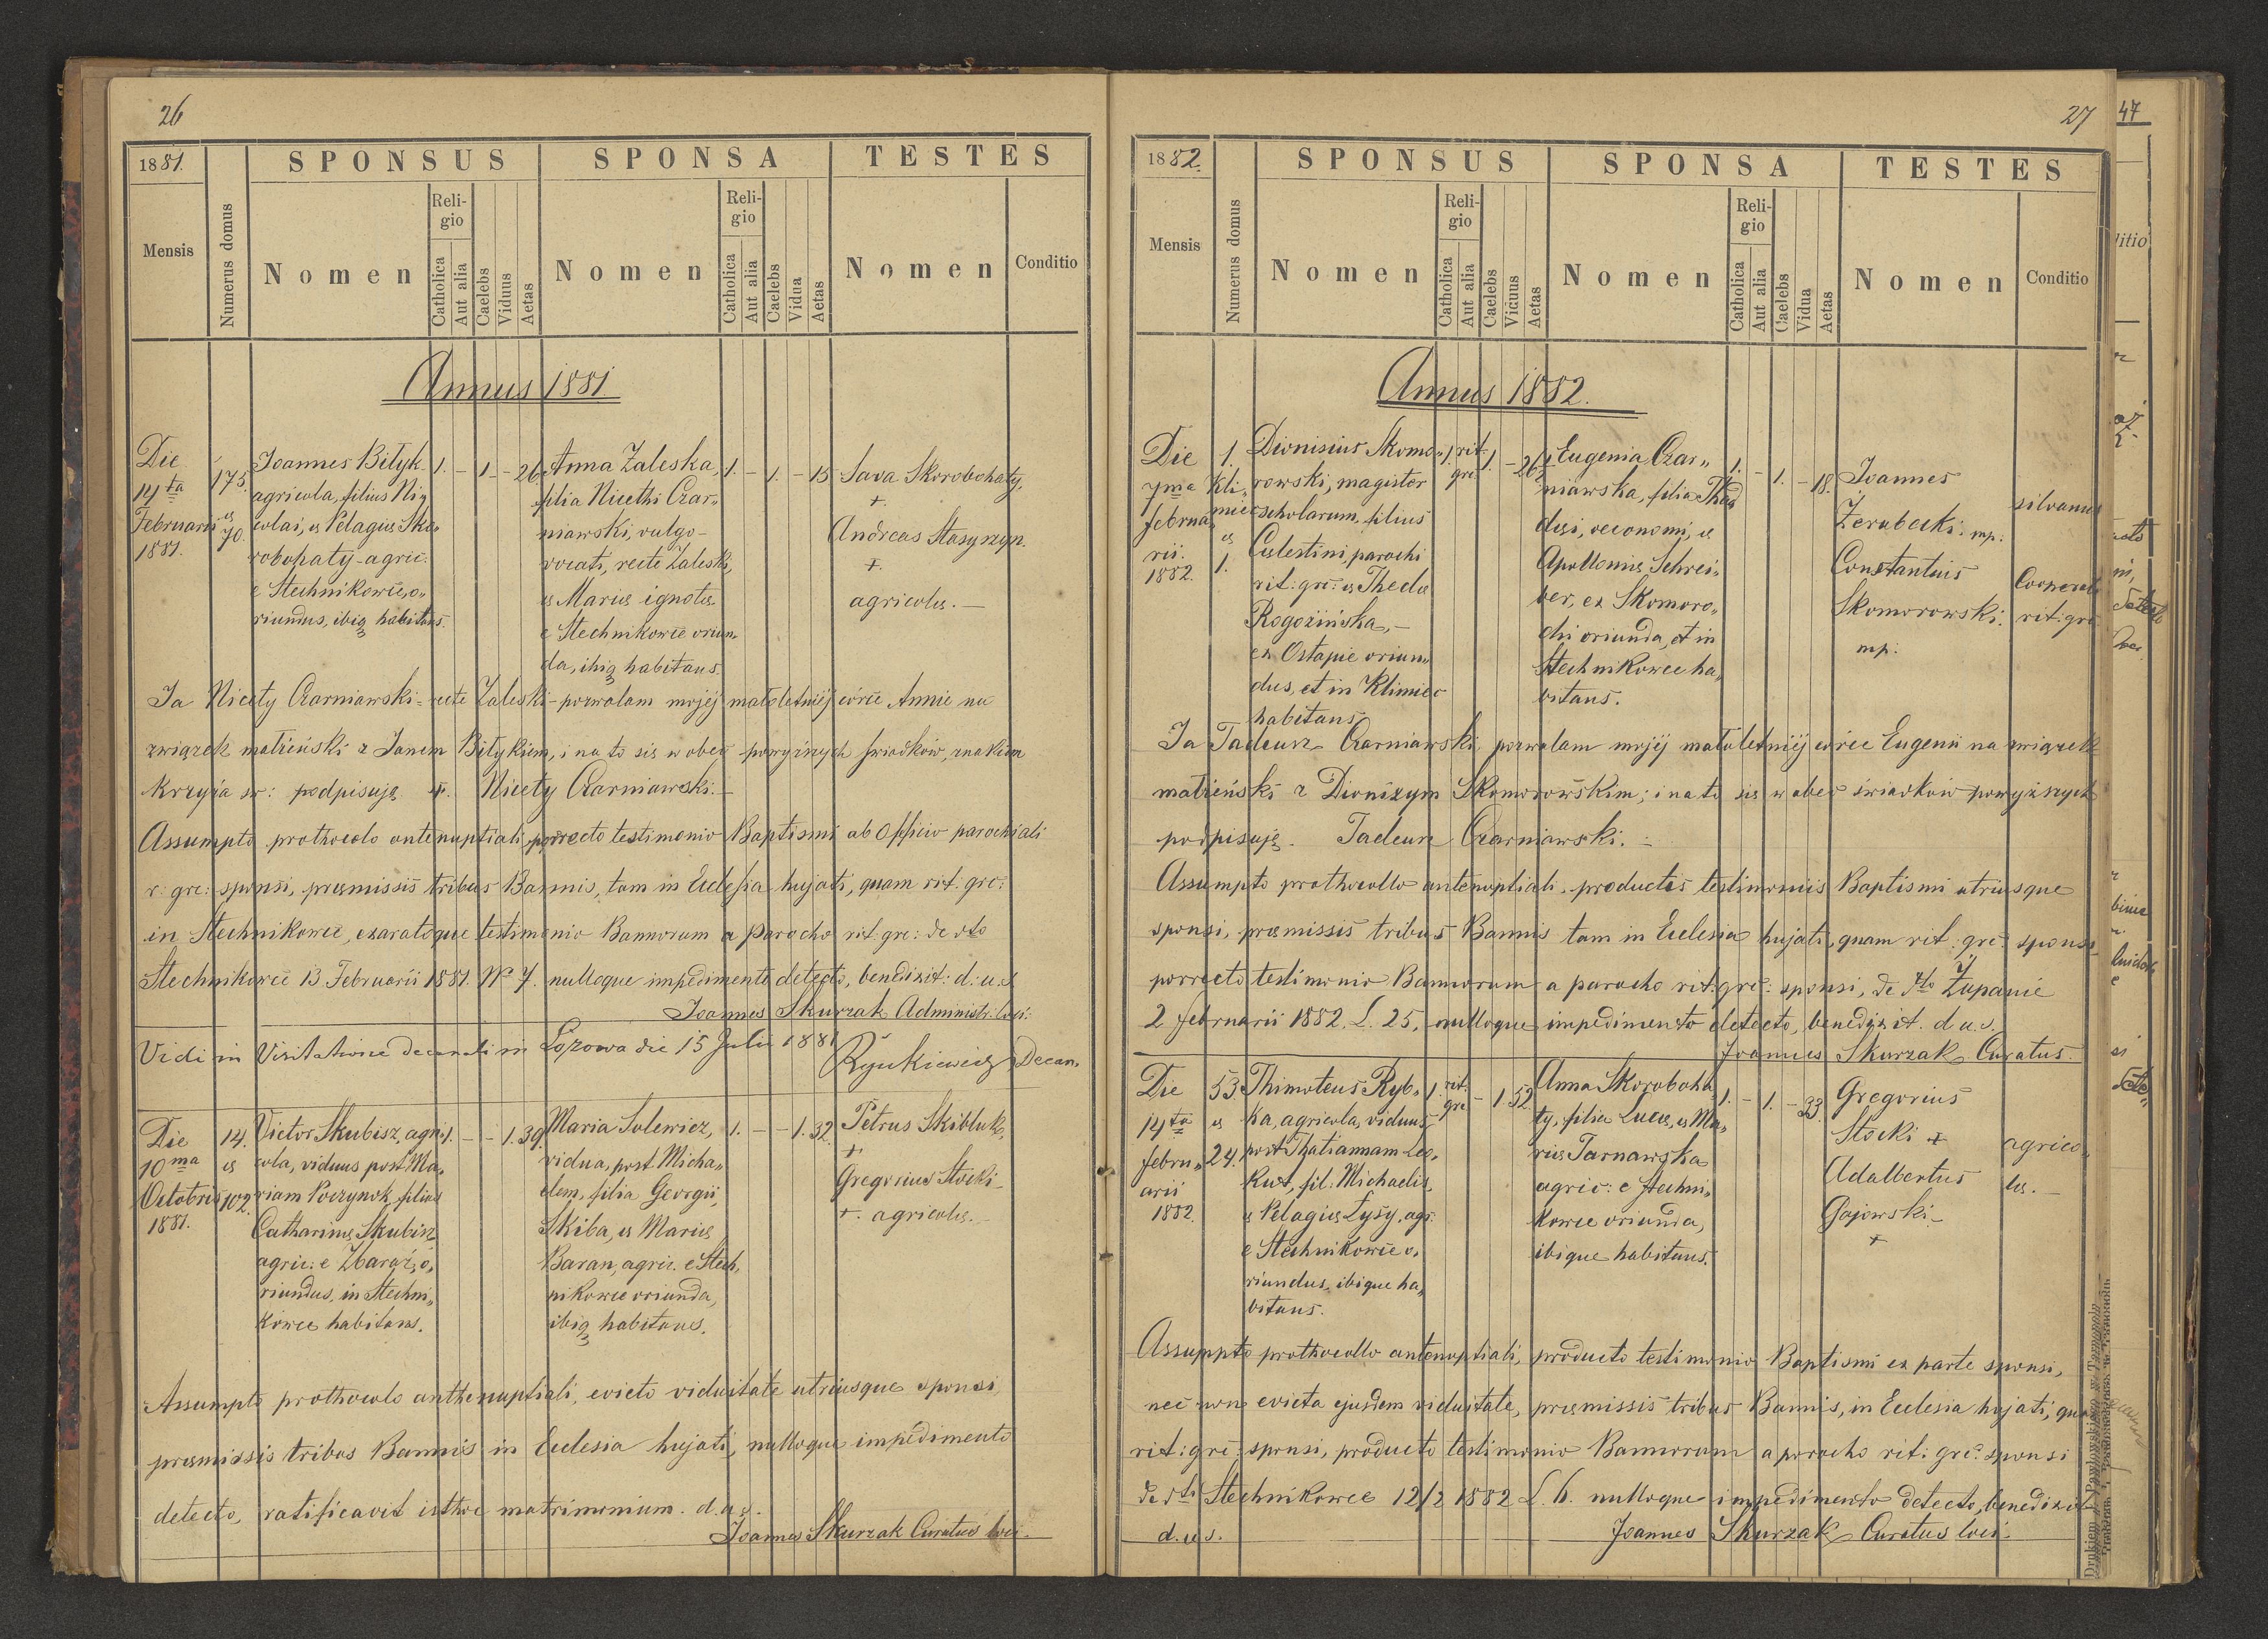 26
1881.
SPONSUS
SPONSA
TESTES
Mensis
Numerus domus
Nomen
Religio
Catholica
Aut alia
Caelebs
Viduus
Aetas
Nomen
Religio
Catholica
Aut alia
Caelebs
Vidua
Aetas
Nomen
Conditio
Annus 1881.
Die
14ta
Februarii
1881.
175.
et
70.
Joannes Bityk
agricola, filius Ni
colai, et Pelagiæ Sko
robohaty - agric:
e Stechnikowce, o„
riundus, ibiq habitans.
1. – 1 – 26
Anna Zaleska,
filia Nicethi Czar„
niawski, vulgo –
vocati, recte Zaleski,
et Mariæ ignotæ.
e Stechnikowce oriun„
da, ibiq habitans.
1. – 1. – 15
Sava Skorobohaty,
+.
Andreas Stasyszyn.
+.
agricolæ. –
Ja Nicety Czarniawski = recte Zaleski – pozwalam mojéj małoletniéj córce Annie na
związek małżeński z Janem Bitykiem, i na to się wobec powyższych świadków, znakiem
krzyża św: podpisuję +. Nicety Czarniawski. –
Assumpto prothocolo antenuptiali, porrecto testimonio Baptismi ab Officio parochiali
r: grc: sponsi, præmissis tribus Bannis, tam in Ecclesia hujati, quam rit: grc:
in Stechnikowce, exaratoque testimonio Bannorum a Parocho rit: grc: de dto
Stechnikowce 13 Februarii 1881. No 7. nulloque impedimento detecto, benedixit: d: u. s.
Joannes Skurzak Administr: loci:
Vidi in Visitatione decanali in Łozowa die 15 Julii 1881
Decan.
Die
10ma
Octobris
1881.
14.
et
102.
Victor Skubisz, agri
cola, viduus post Ma„
riam Poczynok, filius
Catharinæ Skubisz
agric: e Zbaraż, o„
riundus, in Stechni„
kowce habitans.
1. – – 1. 39.
Maria Solewicz,
vidua, post Micha„
elem, filia Georgii,
Skiba, et Mariæ
Baran, agric. e Stech„
nikowce oriunda,
ibiq habitans.
1. – – 1. 32.
Petrus Skibluk,
+
Gregorius Stocki –
+. agricolæ. –
Assumpto prothocolo anthenuptiali, evicto viduitate utriusque sponsi,
præmissis tribus Bannis in Ecclesia hujati, nulloque impedimento
detecto, ratificavit isthoc matrimonium. d. u. s.
Joannes Skurzak Curatus loci. –
27
1882.
SPONSUS
SPONSA
TESTES
Mensis
Numerus domus
Nomen
Religio
Catholica
Aut alia
Caelebs
Viduus
Aetas
Nomen
Religio
Catholica
Aut alia
Caelebs
Vidua
Aetas
Nomen
Conditio
Annus 1882.
Die
7ma
februa„
rii.
1882.
1.
Kli„
miec
et
1.
Dionisius Skomo„
rowski, magister
scholarum, filius
Celestini, parochi
rit: grc: et Theclæ
Rogozińska, –
ex Ostapie oriun„
dus, et in Klimiec
habitans.
1. rit. grc. 1. – 26½
Eugenia Czar„
niawska, filia Thad
dei, oeconomi, et
Apolloniæ Schrei„
ber, ex Skomoro„
chi oriunda, et in
Stechnikowce ha„
bitans.
1. – 1. – 18.
Joannes
Zerubecki. mp.
Constantius
Skomorowski.
mp.
silvanus
rit: grc
Ja Tadeusz Czarniawski, pozwalam mojéj małoletniéj córce Eugenii na związek
małżeński z Dionizym Skomorowskim; i na to się wobec świadków powyższych
podpisuję. Tadeusz Czarniawski. –
Assumpto prothocollo antenuptiali, productis testimoniis Baptismi utriusque
sponsi, præmissis tribus Bannis tam in Ecclesia hujati, quam rit: grc: sponsi
porrecto testimonio Bannorum a parocho rit: grc: sponsi, de dto Żupanie
2 februarii 1882, L. 25, nulloque impedimento detecto, benedixit. d u. s.
Joannes Skurzak Curatus.
Die
14ta
febru„
arii
1882.
53
et
24.
Thimoteus Ryb„
ka, agricola, viduus
post Thatiannam Le„
kut, fil: Michaelis,
et Pelagiæ Łysy, agr:
e Stechnikowce o„
riundus, ibique ha„
bitans.
1. rit. grc – 1. 52.
Anna Skoroboha
ty, filia Lucæ, et Ma„
riæ Tarnawska
agric: e Stechni„
kowce oriunda,
ibique habitans.
1. – 1. – 23.
Gregorius
Stocki +
Adalbertus
Gajowski –
+
agrico„
læ. –
Assumpto prothocollo antenuptiali, producto testimonio Baptismi ex parte sponsi,
nec non evicta ejusdem viduitate, præmissis tribus Bannis, in Ecclesia hujati, quam
rit: grc: sponsi, producto testimonio Bannorum a parocho rit: grc: sponsi
de dto Stechnikowce 12/2 1882 L. 6. nulloque impedimento detecto, benedixit
d. u. s.
Joannes Skurzak Curatus loci. –
47